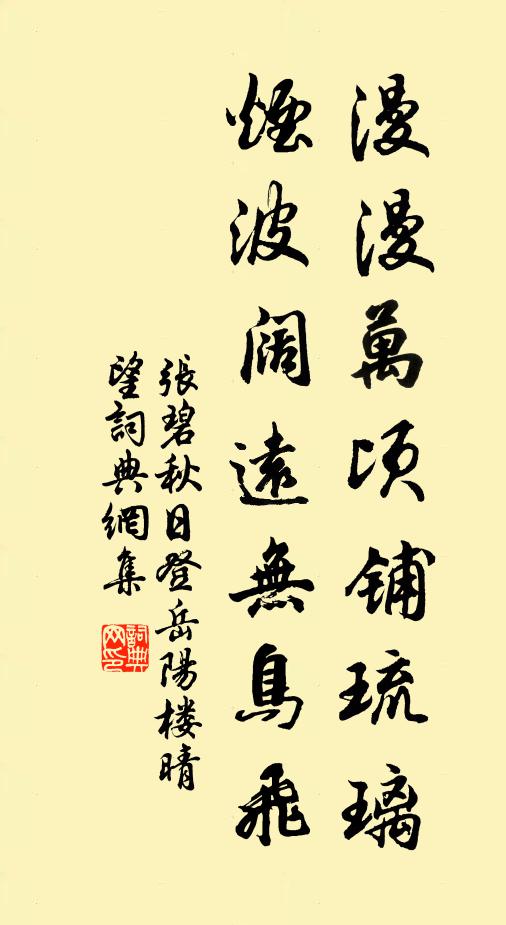 漫漫萬頃鋪琉璃
煙波闊遠無鳥飛
張碧秋日登岳陽楼晴
望詞典網集
詞典
网印